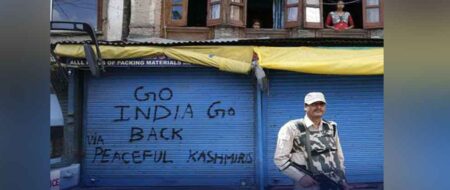 ALL KINDS OF PACKING MATERIALS
GO
INDIA GO
BACK
VIA
PEACEFUL KASHMIRIS